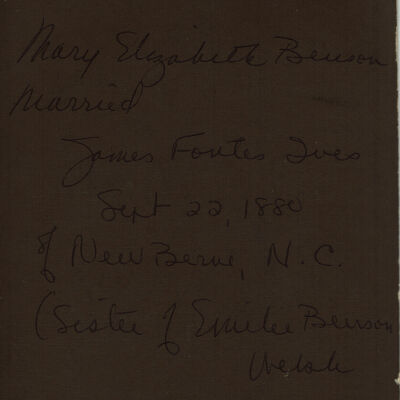 Mary Elizabeth Benson
Married
James Fontes Ives
Sept 22, 1880
of New Berne, N.C.
(Sister of Emilie Benson
Welsh